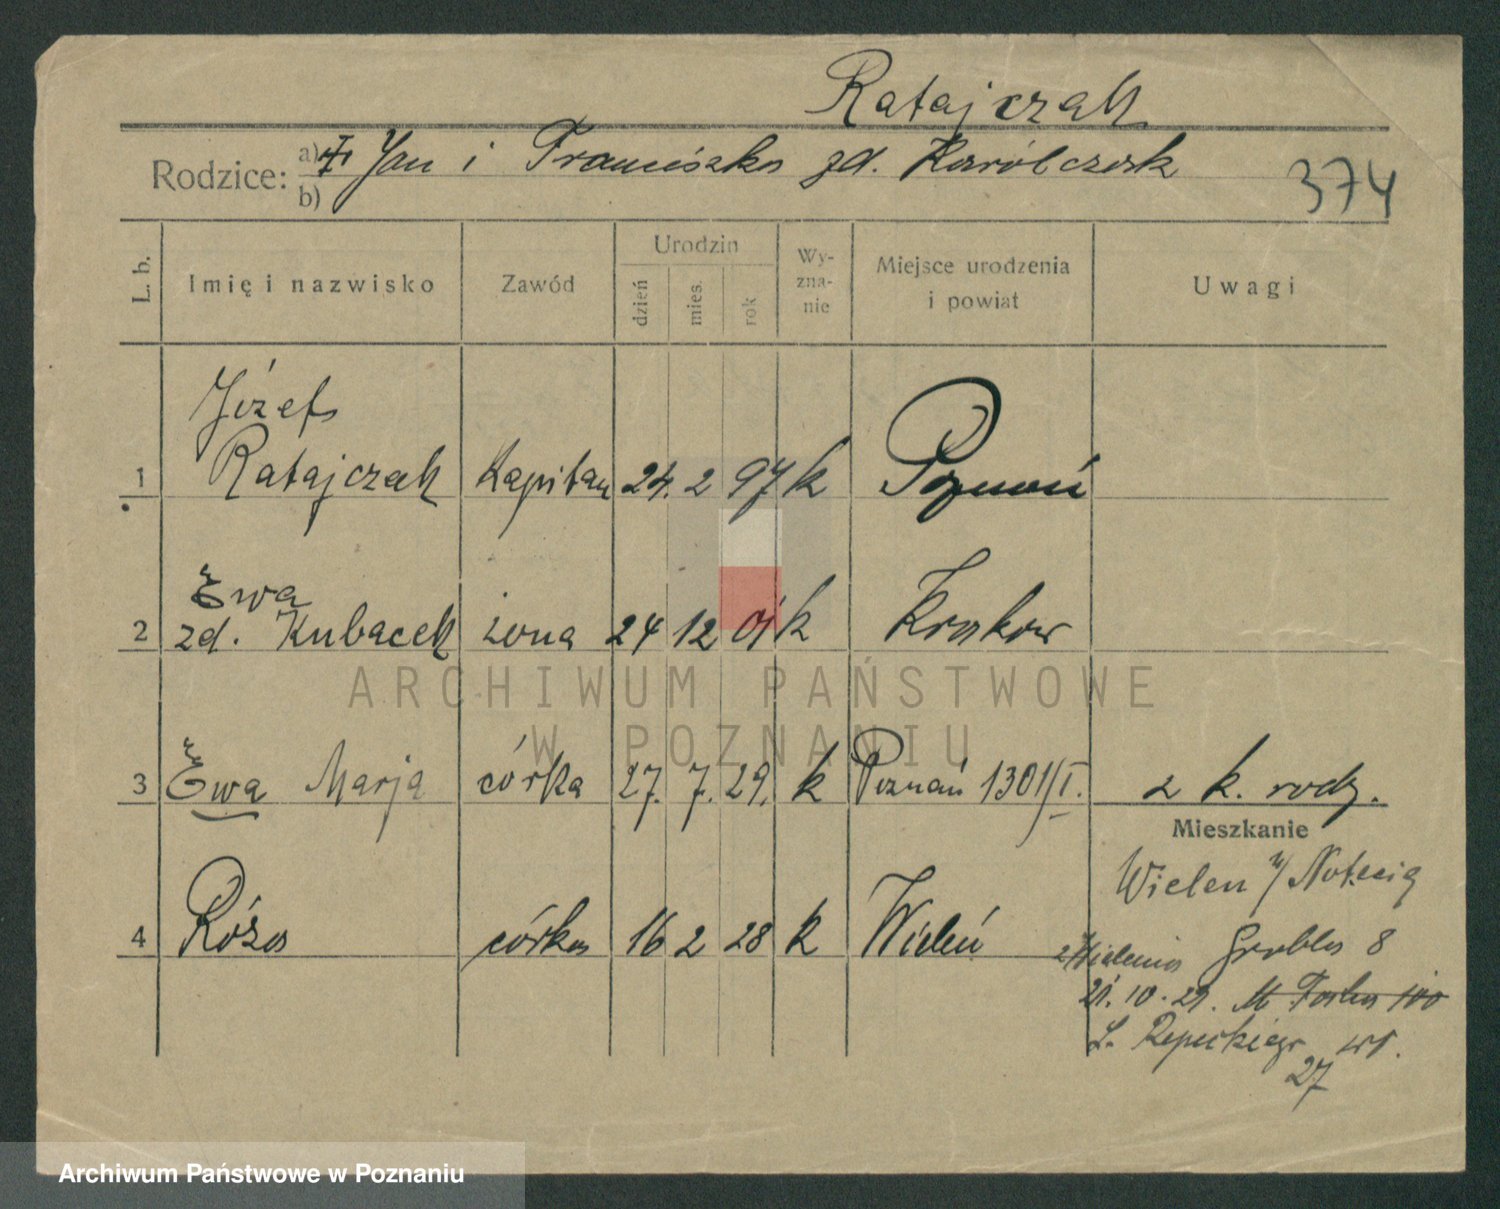 Ratajczak
Rodzice: a) Jan i Franciszka zd. Karólczak
b)
374
L. b. Imię i nazwisko Zawód Urodzin dzień mies. rok Wy-zna-nie Miejsce urodzenia i powiat Uwagi
Józef
1 Ratajczak Kapitan 24. 2 97 k Poznań
Ewa
2 zd. Kubacek żona 24 12 01 k Krakow
ARCHIWUM PAŃSTWOWE
W POZNANIU
3 Ewa Marja córka 27. 7. 29. k Poznań 1301/I. z k. rodz.
Mieszkanie
Wielen n/Notecią
4 Róża córka 16 2 28 k Wieleń
z Wielenia Grobla 8
21. 10. 29. M. Focha 100
27
Archiwum Państwowe w Poznaniu